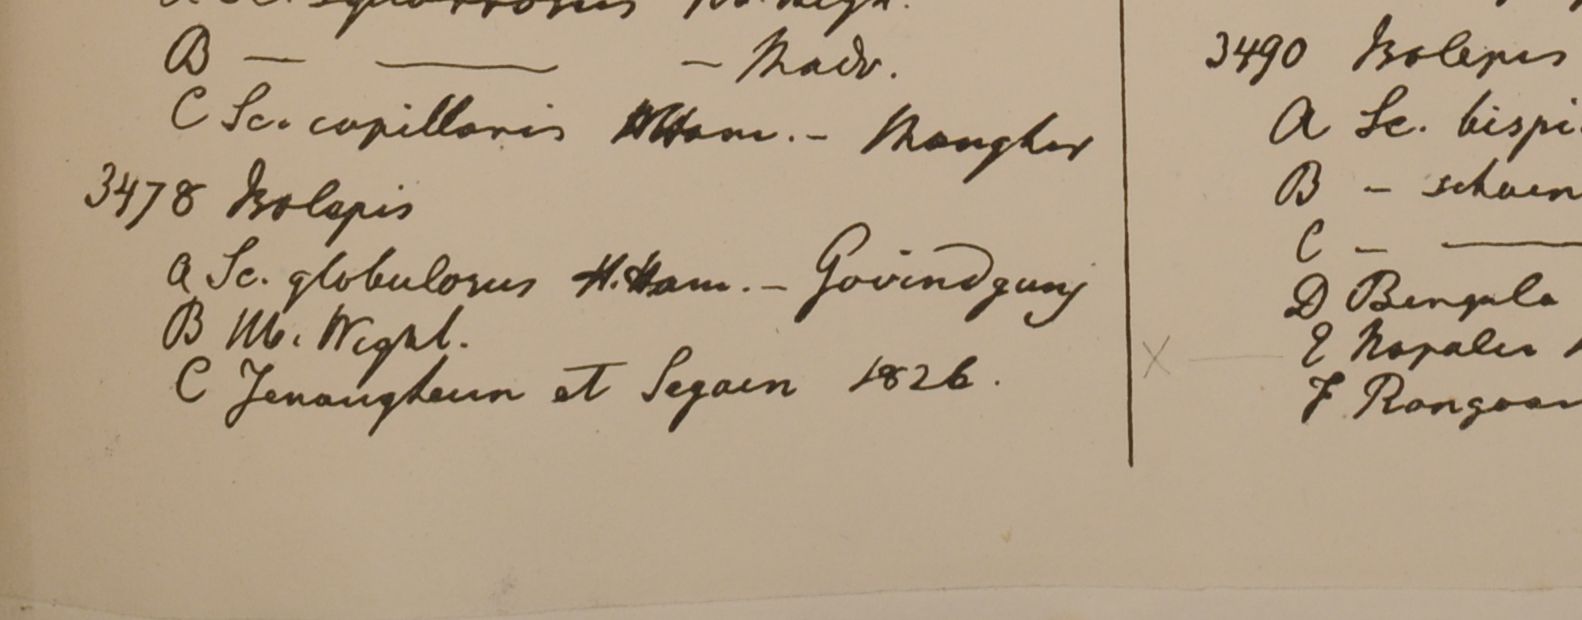 B — —— — Madr.
C Sc. capillaris HHam. - Monghir
3478 Isolepis
A Sc. globulosus H.Ham. - Govindgunj
B Hb. Wight.
C Jenangheun et Segaen 1826.
3490 Isolepis
A Sc. bispi
B - schoen
C - ——
D Bengala
E Napalia
F Rangoon